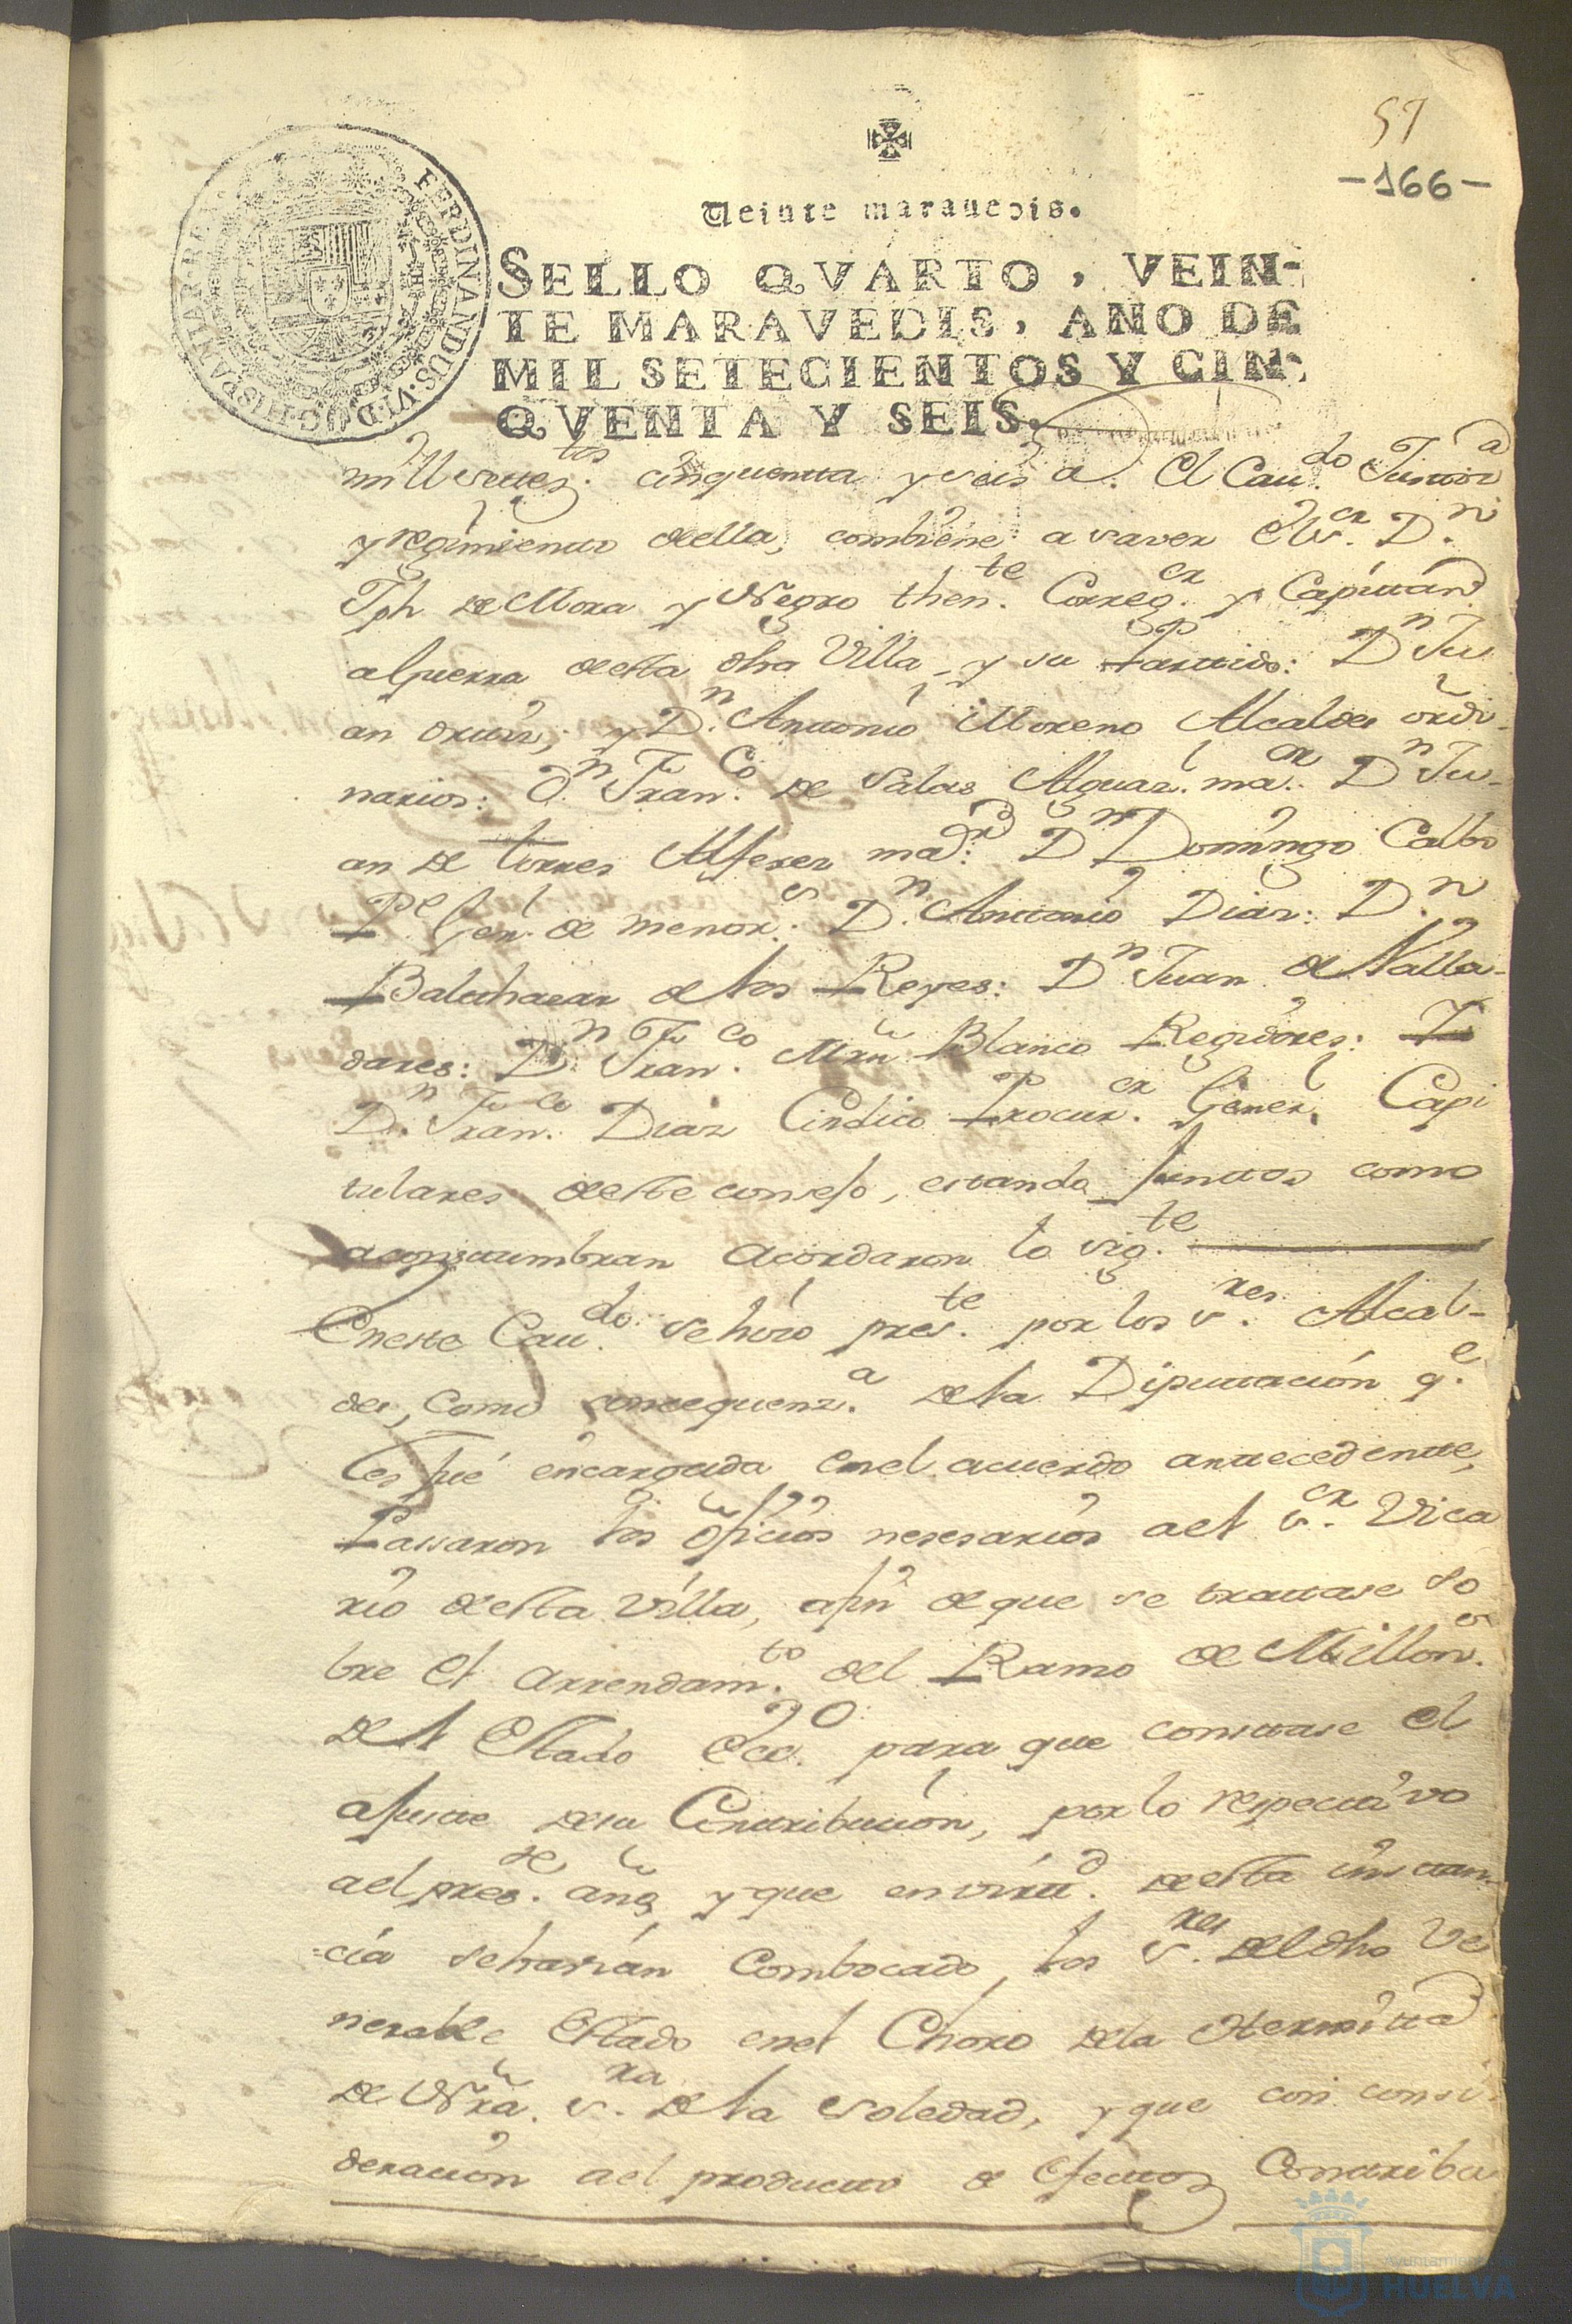 57
-166-
Veinte marauedis.
SELLO QVARTO, VEIN-
TE MARAVEDIS, AÑO DE
MIL SETECIENTOS Y CIN-
QVENTA Y SEIS.
FERDINANDUS·VI·D·G·HISPANIAR·REX·
mill settez.tos cinquentta y seis a. El Cau.do Justtizia
y regimientto della, combiene a saver El s.or D.n
Jph de Mora y Negro then.te Correg.or y Capittán
a guerra desta dha Villa, y su Parttido: D.n Ju
an ortiz; y D.n Anttonio Moreno Alcaldes ordi-
narios: D.n Fran.co de Salas Alguaz.l ma.or D.n Ju-
an de torres Alferez ma.or D.n Domingo Calbo
P.e Gen.l de menor.s D.n Anttonio Diaz: D.n
Balthazar de los Reyes: D.n Juan de Valla-
dares: D.n Fran.co Mrn Blanco Regidores: Y
D.n Fran.co Diaz Cindico Procur.or Gener.l Capi
tulares deste consejo, estando junttos como
aconsttumbran acordaron lo sig.te
En este Cau.do se hizo pres.te por los s.res Alcal-
des, como consequenz.a de la Diputtación q.e
les fué encargada en el acuerdo anttecedentte,
Passaron los ofícios nesesarios a el s.or Vica
rio desta Villa, afin de que se trattase so
bre el arrendam.to del Ramo de Millon.s
del Estado Ecc.co para que consttase el
ajustte de su Conttribución, por lo respecttivo
a el pres.te año, y que en virttu.d desta insttan-
cia se havían combocado los s.res del dho Ve
nerable Estado en el Choro de la Hermitta
de Nra. s.ra de la Soledad, y que con consi-
deración a el productto de efecttos Conttribu
Ayuntamiento de
HUELVA